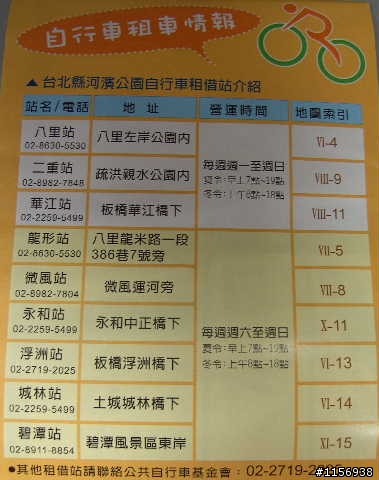 自行車租車情報
▲台北縣河濱公園自行車租借站介紹
站名/電話 地 址 營運時間 地圖索引
八里站 02-8630-5530 八里左岸公園內 VI-4
二重站 02-8982-7848 疏洪親水公園內 VIII-9
華江站 02-2259-5499 板橋華江橋下 VIII-11
每週週一至週日
夏令:早上7點~19點
冬令:上午8點~18點
龍形站 02-8630-5530 八里龍米路一段386巷7號旁 VII-5
微風站 02-8982-7804 微風運河旁 VII-8
永和站 02-2259-5499 永和中正橋下 X-11
浮洲站 02-2719-2025 板橋浮洲橋下 VI-13
城林站 02-2259-5499 土城城林橋下 VI-14
碧潭站 02-8911-8854 碧潭風景區東岸 XI-15
每週週六至週日
夏令:早上7點~19點
冬令:上午8點~18點
●其他租借站請聯絡公共自行車基金會:02-2719-2
#1156938